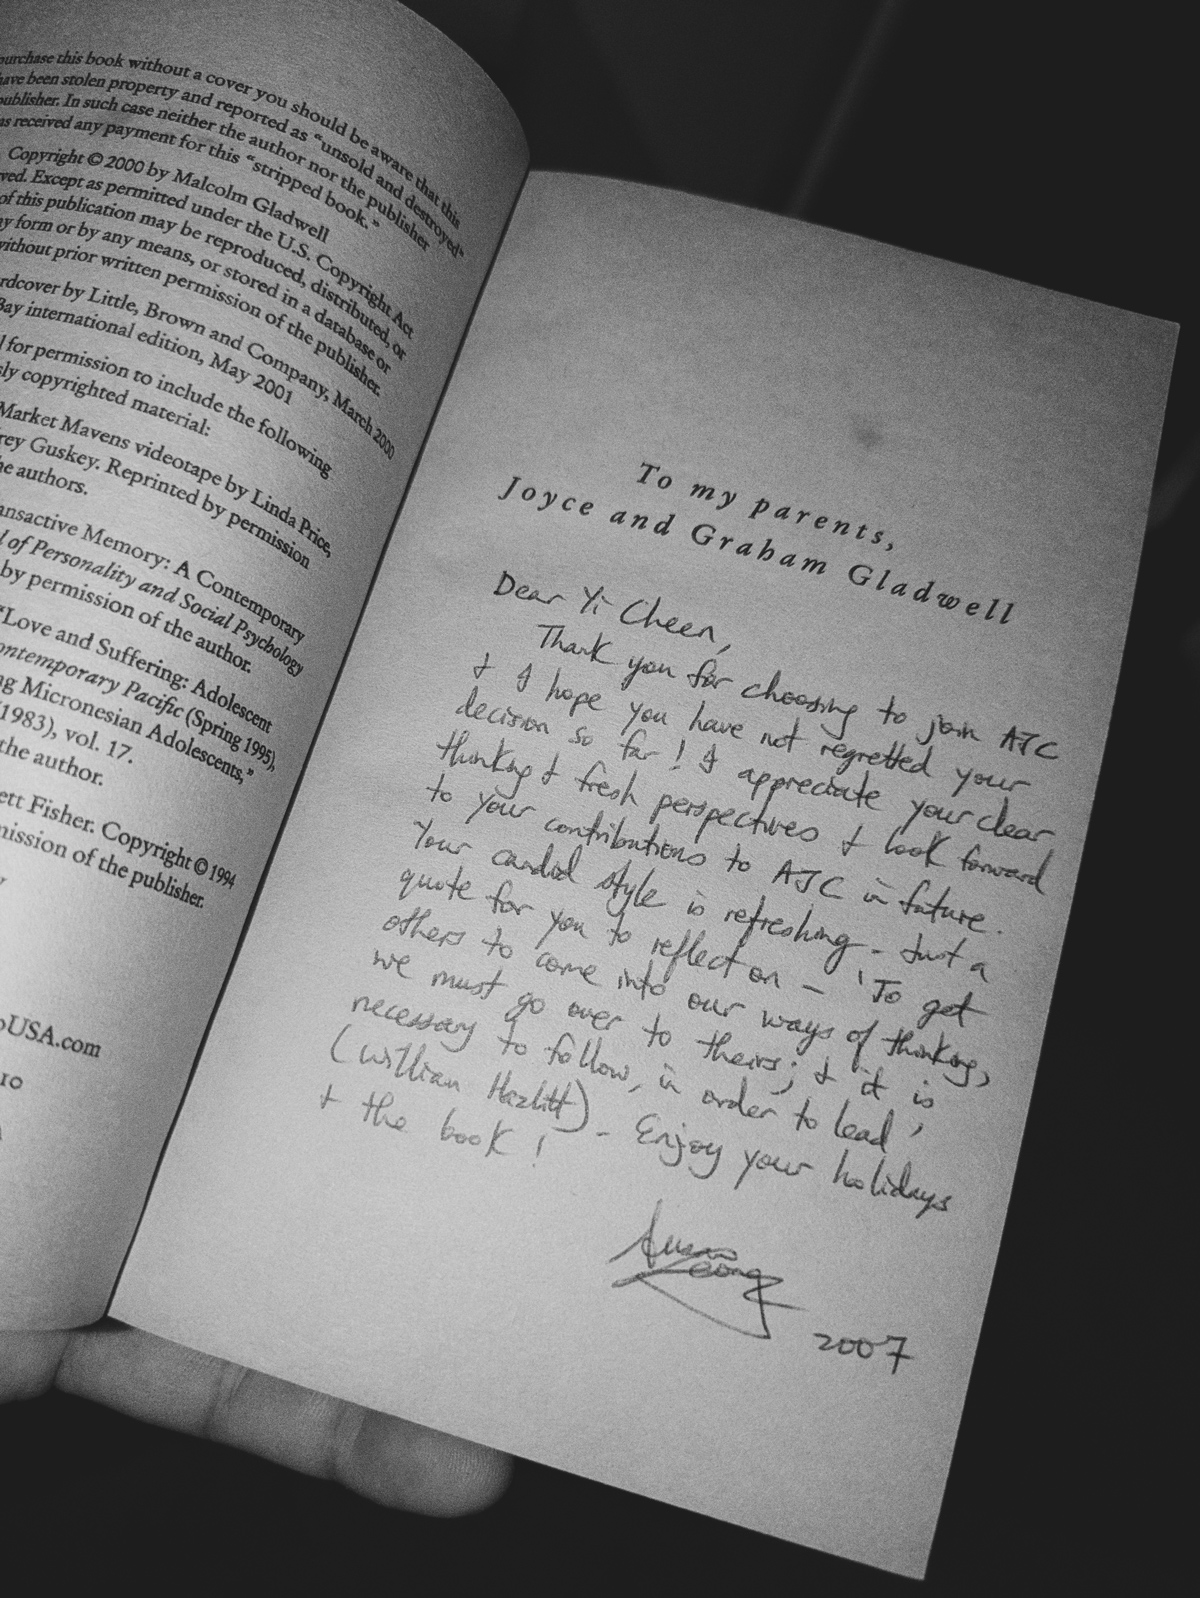 purchase this book without a cover you should be aware that this
have been stolen property and reported as “unsold and destroyed”
publisher. In such case neither the author nor the publisher
as received any payment for this “stripped book.”
Copyright © 2000 by Malcolm Gladwell
ved. Except as permitted under the U.S. Copyright Act
of this publication may be reproduced, distributed, or
ny form or by any means, or stored in a database or
without prior written permission of the publisher.
rdcover by Little, Brown and Company, March 2000
Bay international edition, May 2001
l for permission to include the following
sly copyrighted material:
Market Mavens videotape by Linda Price,
rey Guskey. Reprinted by permission
he authors.
ansactive Memory: A Contemporary
l of Personality and Social Psychology
by permission of the author.
“Love and Suffering: Adolescent
ontemporary Pacific (Spring 1995),
ng Micronesian Adolescents,”
(1983), vol. 17.
the author.
ett Fisher. Copyright © 1994
mission of the publisher.
oUSA.com
10
To my parents,
Joyce and Graham Gladwell
Dear Yi Cheen,
Thank you for choosing to join AJC
& I hope you have not regretted your
decision so far! I appreciate your clear
thinking & fresh perspectives & look forward
to your contributions to AJC in future.
Your candid style is refreshing - Just a
quote for you to reflect on – 'To get
others to come into our ways of thinking,
we must go over to theirs; & it is
necessary to follow, in order to lead'
(William Hazlitt) - Enjoy your holidays
& the book!
Leong
2007